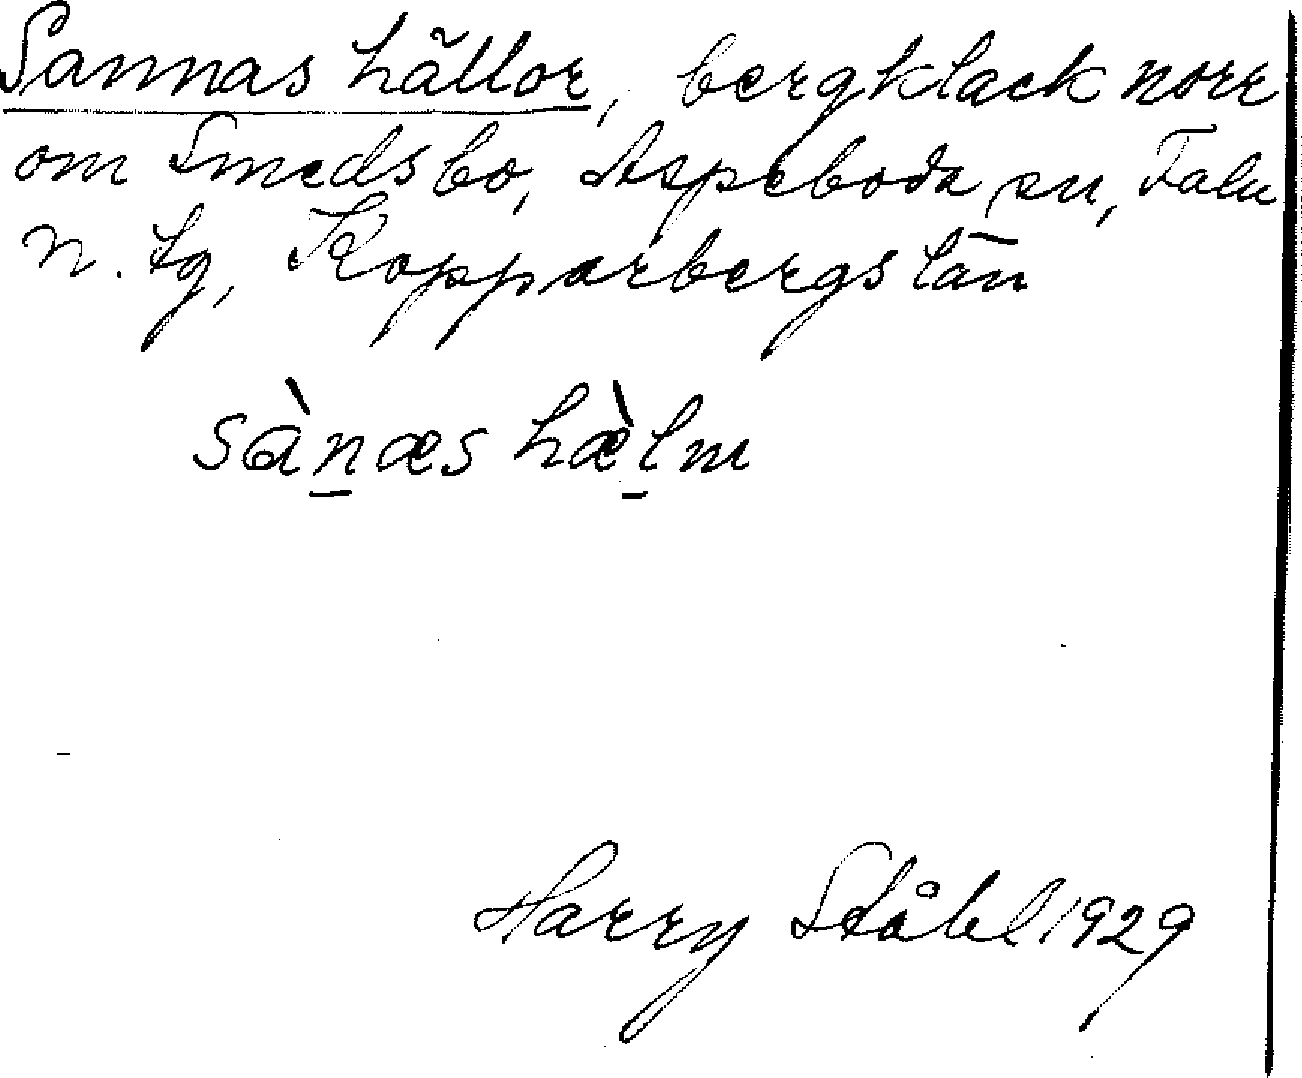 Sannas hällor, bergklack norr
om Smedsbo, Aspeboda sn, Falu
n. tg, Kopparbergs län
sànæs hæ̀lm
Harry Ståhl 1929